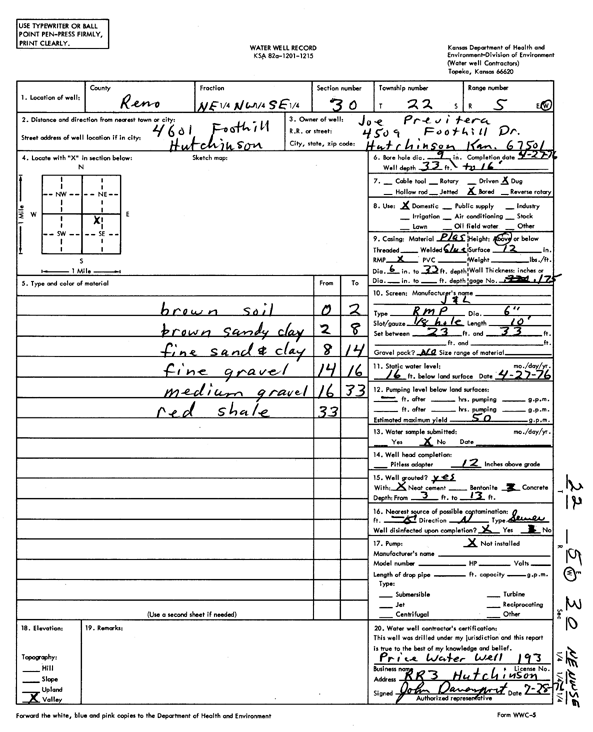 USE TYPEWRITER OR BALL
POINT PEN-PRESS FIRMLY,
PRINT CLEARLY.
WATER WELL RECORD
KSA 82a-1201-1215
Kansas Department of Health and
Environment-Division of Environment
(Water well Contractors)
Topeka, Kansas 66620
1. Location of well: County Reno Fraction NE 1/4 NW 1/4 SE 1/4 Section number 30 Township number T 22 S Range number R 5 E/W
2. Distance and direction from nearest town or city: 4601 Foothill
Street address of well location if in city: Hutchinson
3. Owner of well: Joe Previtera
R.R. or street: 4509 Foothill Dr.
City, state, zip code: Hutchinson Kan. 67501
4. Locate with "X" in section below: Sketch map:
N
NW NE
W X E
SW SE
S
1 Mile
1 Mile
5. Type and color of material From To
brown soil 0 2
brown sandy clay 2 8
fine sand & clay 8 14
fine gravel 14 16
medium gravel 16 33
red shale 33
(Use a second sheet if needed)
6. Bore hole dia. 9 in. Completion date 4-27-76
Well depth 33 ft. to 16'
7. Cable tool Rotary Driven X Dug
Hollow rod Jetted X Bored Reverse rotary
8. Use: X Domestic Public supply Industry
Irrigation Air conditioning Stock
Lawn Oil field water Other
9. Casing: Material Plas Height: Above or below
Threaded Welded Glue Surface 12 in.
RMP X PVC Weight lbs./ft.
Dia. 6 in. to 33 ft. depth Wall Thickness: inches or
Dia. in. to ft. depth gage No. .175
10. Screen: Manufacturer's name
J & L
Type RMP Dia. 6"
Slot/gauze 1/8 hole Length 10'
Set between 23 ft. and 33 ft.
ft. and ft.
Gravel pack? No Size range of material
11. Static water level: mo./day/yr.
16 ft. below land surface Date 4-27-76
12. Pumping level below land surfaces:
ft. after hrs. pumping g.p.m.
ft. after hrs. pumping g.p.m.
Estimated maximum yield 50 g.p.m.
13. Water sample submitted: mo./day/yr.
Yes X No Date
14. Well head completion:
Pitless adapter 12 Inches above grade
15. Well grouted? yes
With: X Neat cement Bentonite Concrete
Depth: From 3 ft. to 13 ft.
16. Nearest source of possible contamination:
ft. Direction N Type Sewer
Well disinfected upon completion? X Yes No
17. Pump: X Not installed
Manufacturer's name
Model number HP Volts
Length of drop pipe ft. capacity g.p.m.
Type:
Submersible Turbine
Jet Reciprocating
Centrifugal Other
18. Elevation:
Topography:
Hill
Slope
Upland
X Valley
19. Remarks:
20. Water well contractor's certification:
This well was drilled under my jurisdiction and this report
is true to the best of my knowledge and belief.
Price Water Well 193
Business name License No.
Address RR3 Hutchinson
Signed John Davenport Date 7-28-76
Authorized representative
Forward the white, blue and pink copies to the Department of Health and Environment
Form WWC-5
T 22 R 5 E W Sec 30 NE NW SE 1/4 1/4 1/4